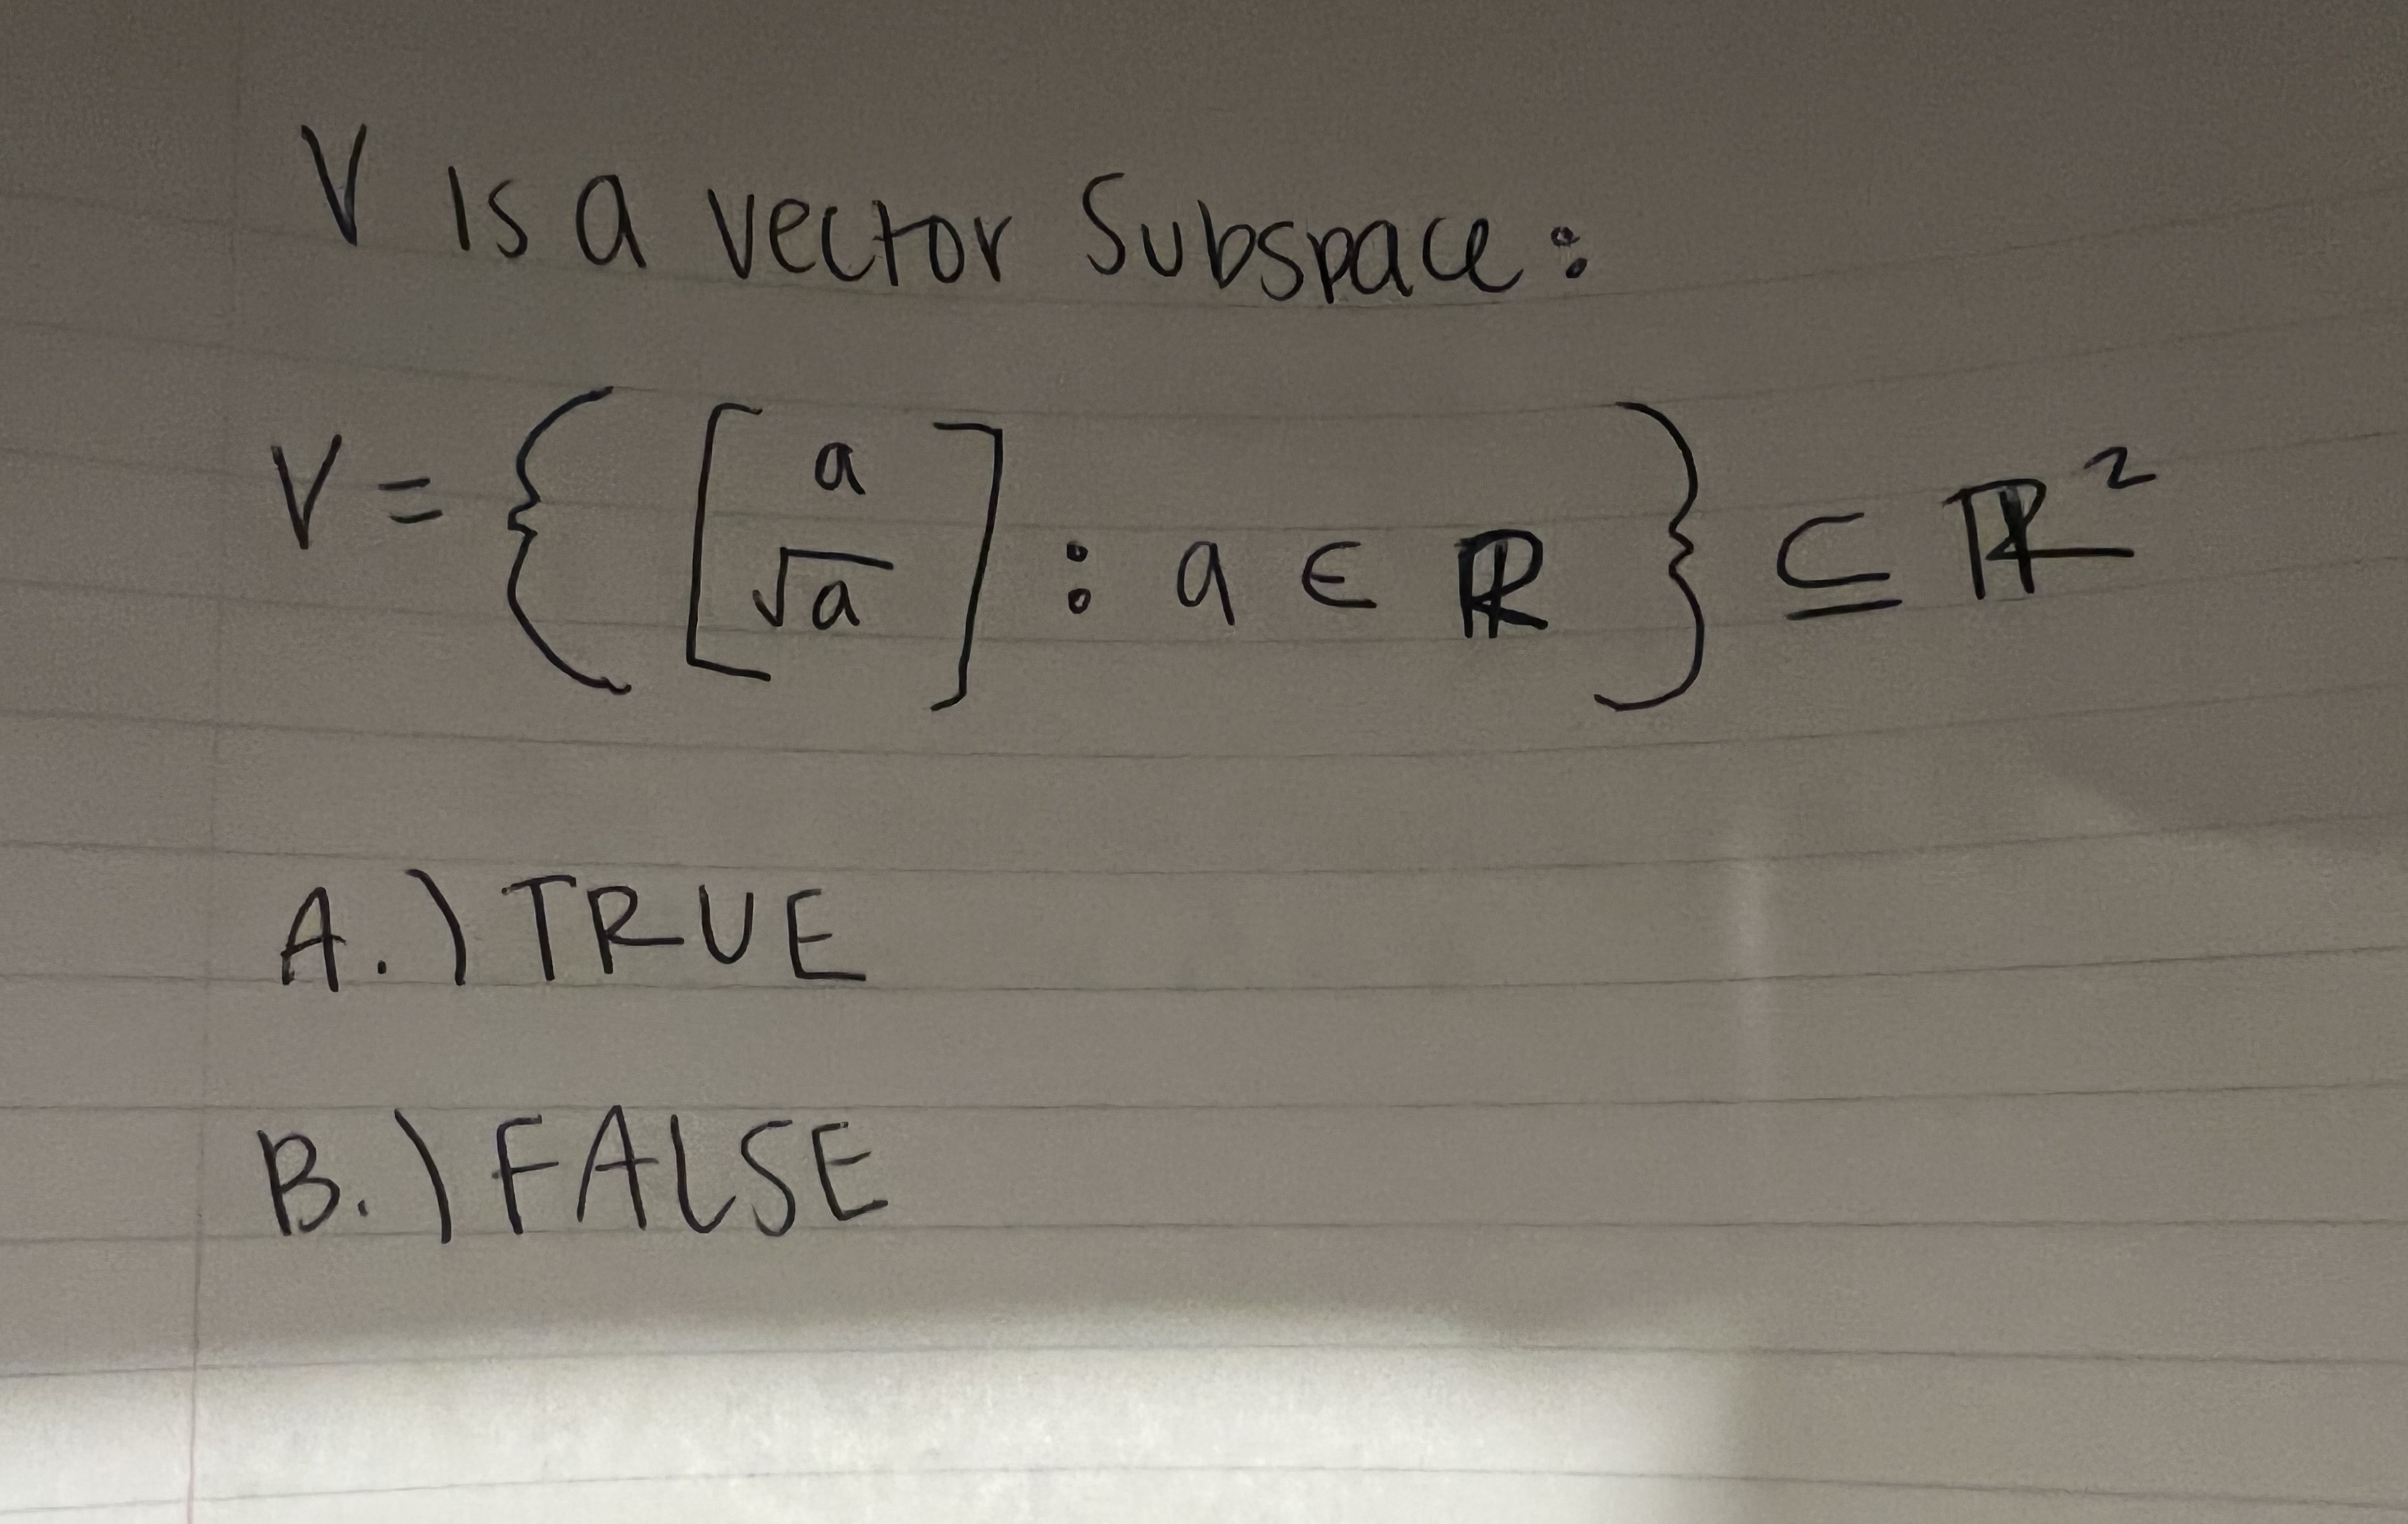 V is a vector Subspace:
V = { [ a √a ] : a ∈ ℝ } ⊆ ℝ²
A.) TRUE
B.) FALSE